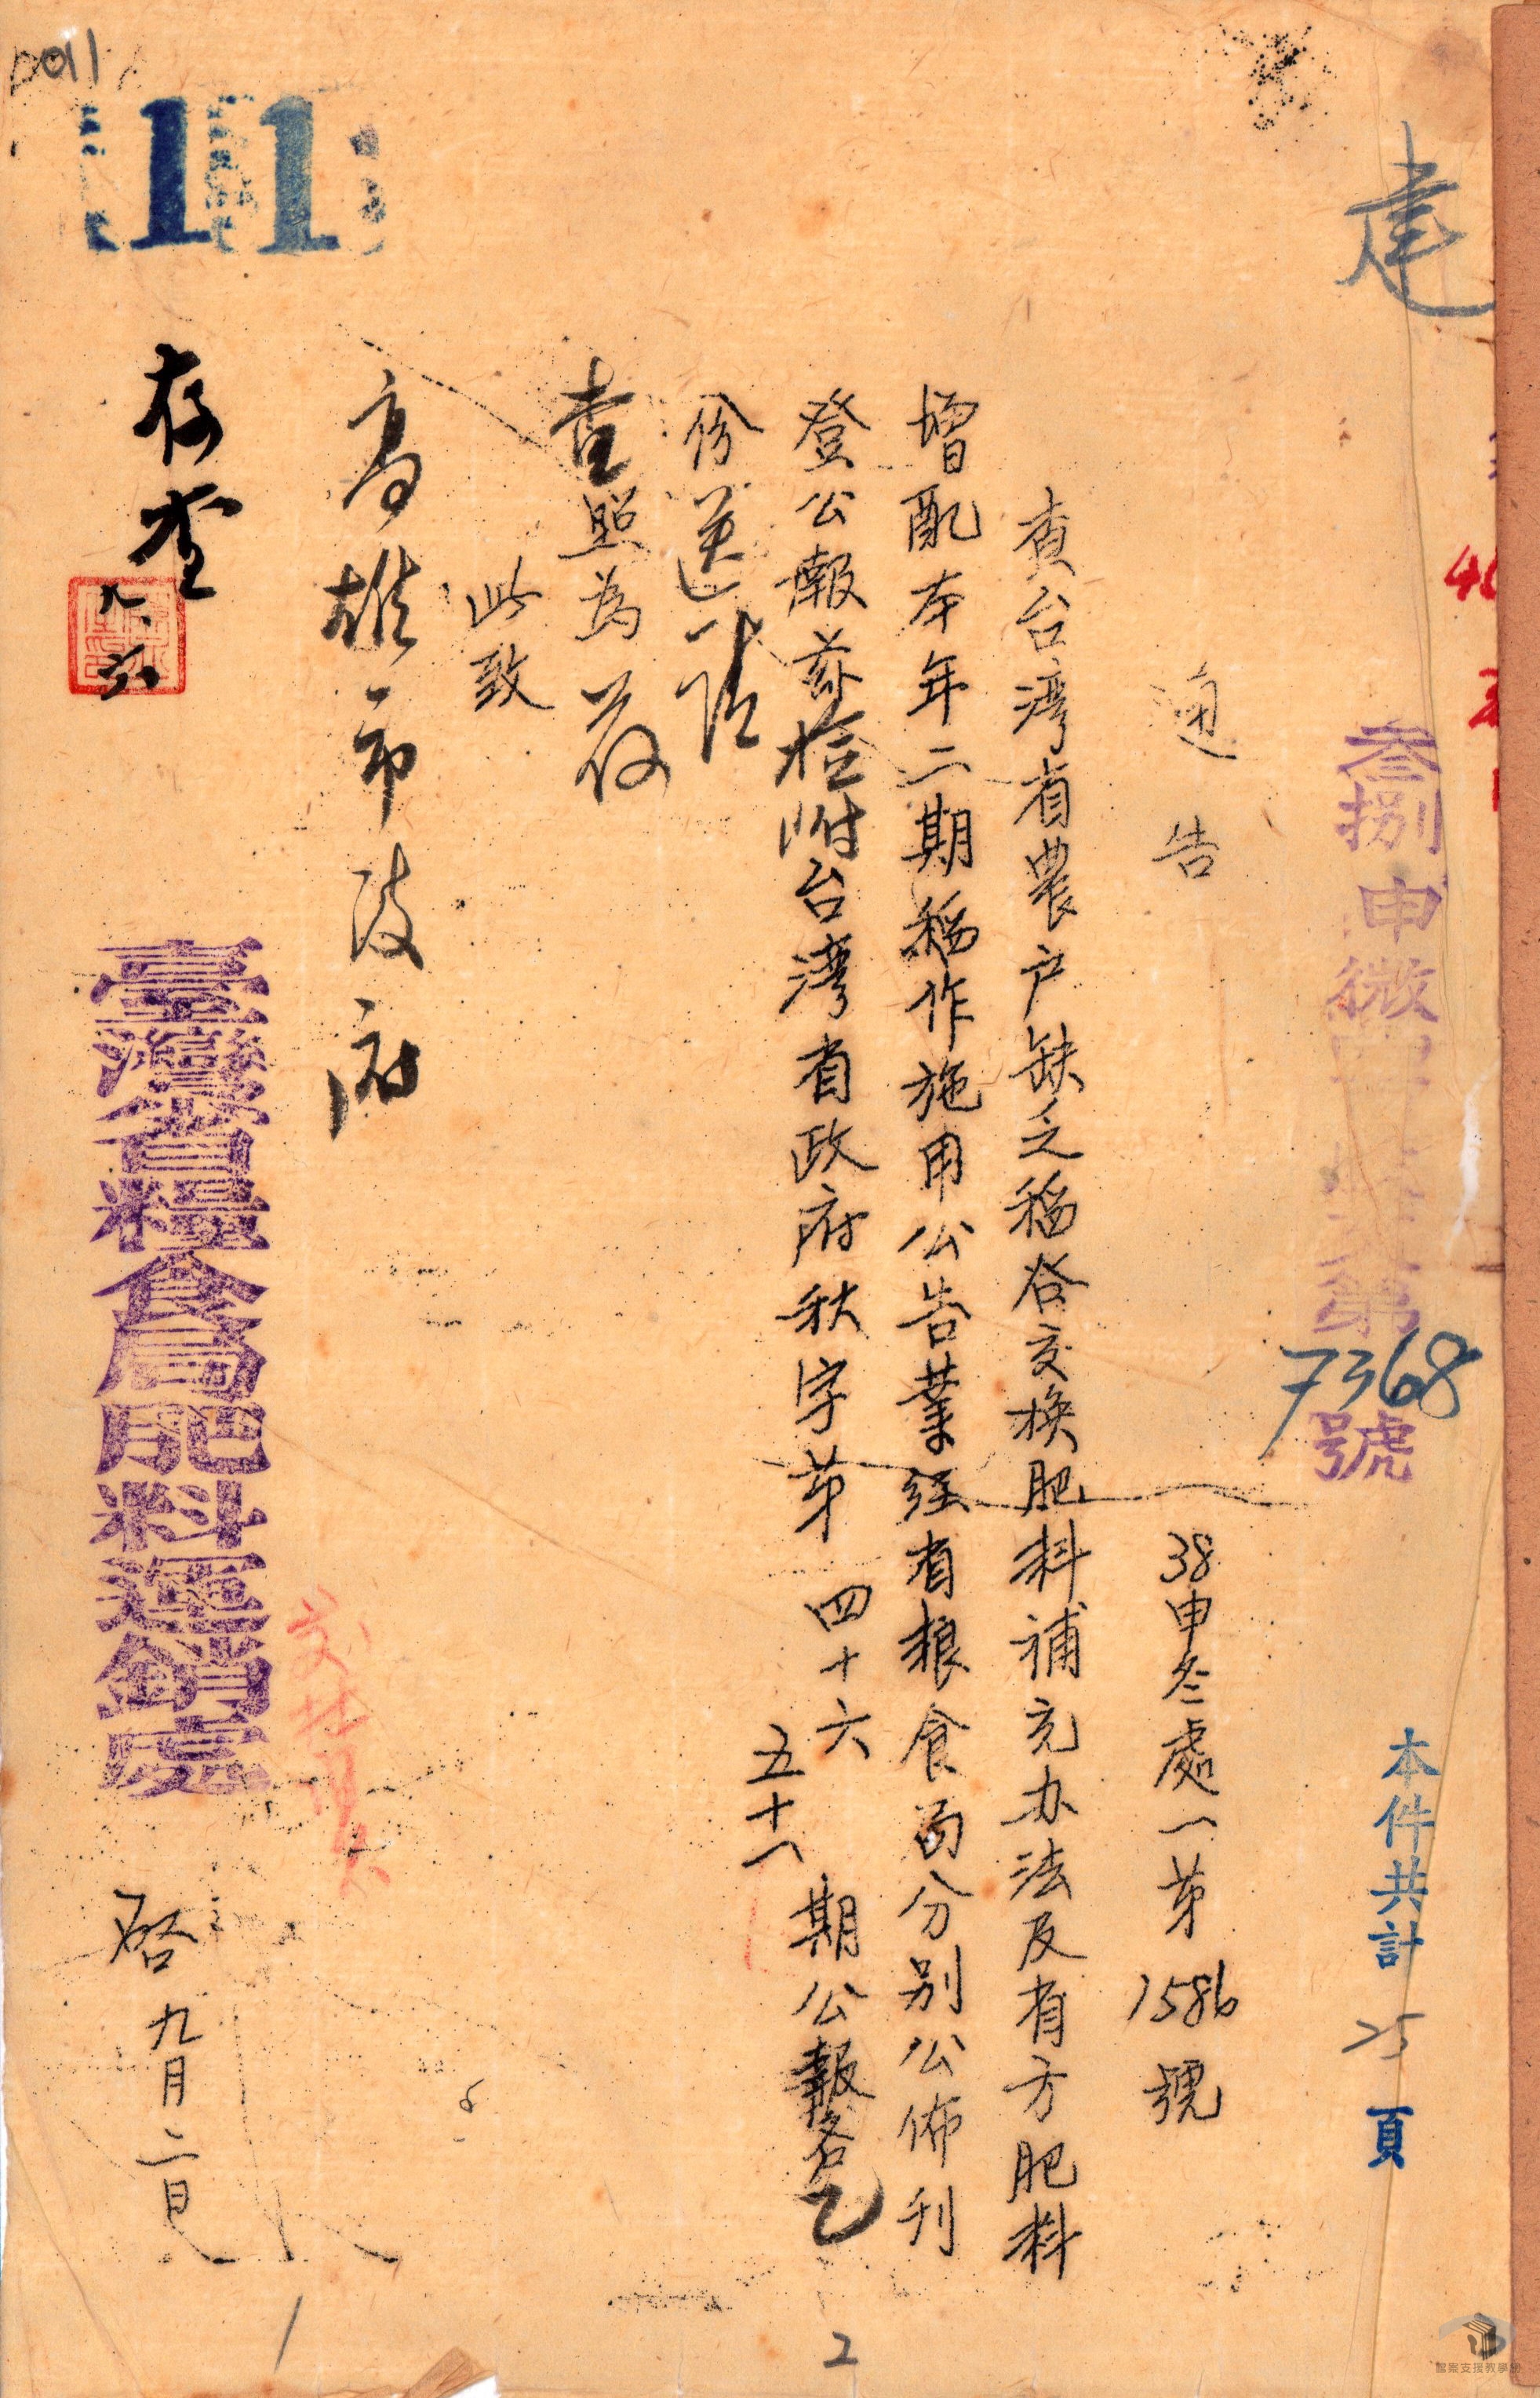 建
叁捌申微
第7368號
本件共計25頁
通告
38申冬處一第1586號
查台湾省農户缺乏稻谷交换肥料補充办法及有方肥料
增配本年二期稻作施用公告業經省粮食局分别公佈刊
登公報茲检附台湾省政府秋字苐四十六 五十八期公報各乙
份送请
查照為荷
此致
高雄市政府
臺灣省糧食局肥料運銷處
啓 九月二日
存查
九.六
11
2
檔案支援教學網